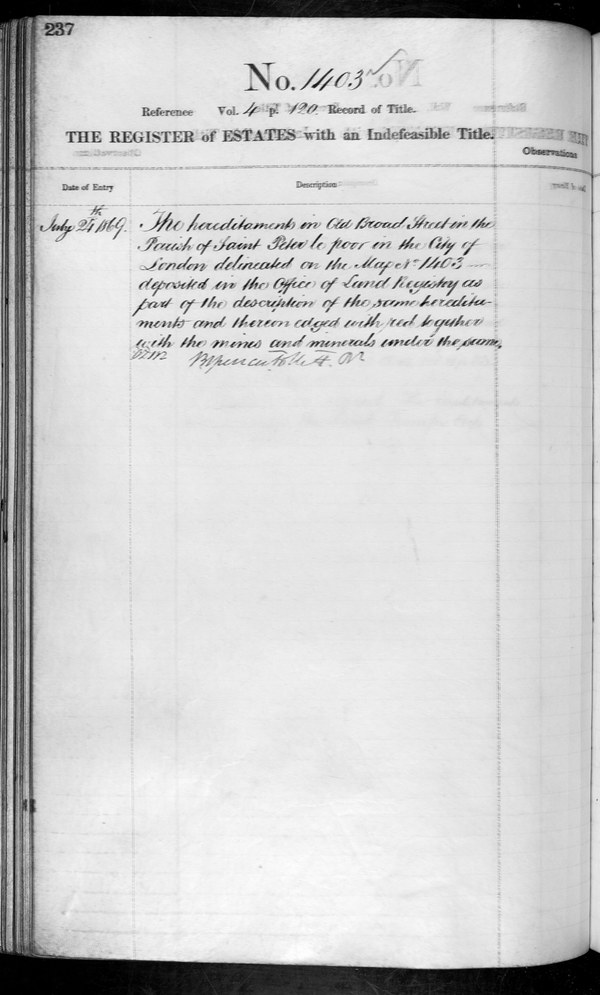 237
No. 1403
Reference Vol. 4 p. 120 Record of Title.
THE REGISTER of ESTATES with an Indefeasible Title.
Observations
Date of Entry
Description
July 24th 1869.
The hereditaments in Old Broad Street in the
Parish of Saint Peter le poor in the City of
London delineated on the Map No 1403
deposited in the Office of Land Registry as
part of the description of the same heredita-
ments and thereon edged with red together
with the mines and minerals under the same,
Follett